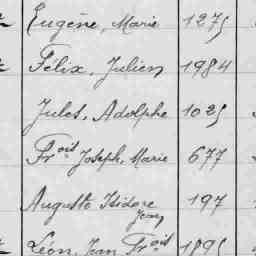 Eugène, Marie 1275
Félix, Julien 1984
Jules, Adolphe 1025
Frois Joseph, Marie 677
Auguste Isidore 197
Jean
Léon, Jean Frois 1895